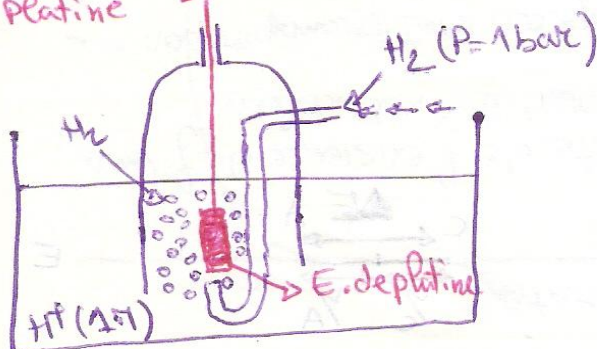 platine
H2 (P=1bar)
H2
E. de platine
H+ (1M)